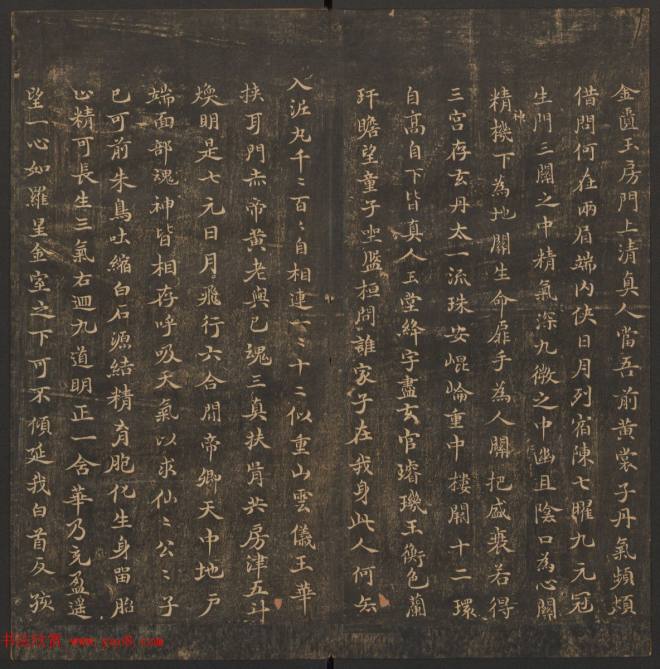 金匱玉房門上清真人當吾前黃裳子丹氣頻煩
借問何在兩眉端內俠日月列宿陳七曜九元冠
生門三關之中精氣深九微之中幽且陰口為心關
精神機下為地關生命扉手為人關把盛衰若得
三宮存玄丹太一流珠安崐崘重中樓閣十二環
自高自下皆真人玉堂絳宇盡玄宮璿璣玉衡色蘭
玕瞻望童子坐盤桓問誰家子在我身此人何去
入泥丸千〻百〻自相連一〻十〻似重山雲儀玉華
挾耳門赤帝黃老與已魂三真扶胥共房津五斗
煥明是七元日月飛行六合間帝卿天中地戶
端面部魂神皆相存呼吸天氣以求仙〻公〻子
已可前朱鳥吐縮白石源結精育胞化生身留胎
止精可長生三氣右迴九道明正一含華乃充盈遥
望一心如羅星金室之下可不傾延我白首反孩
书法欣赏 www.yac8.com